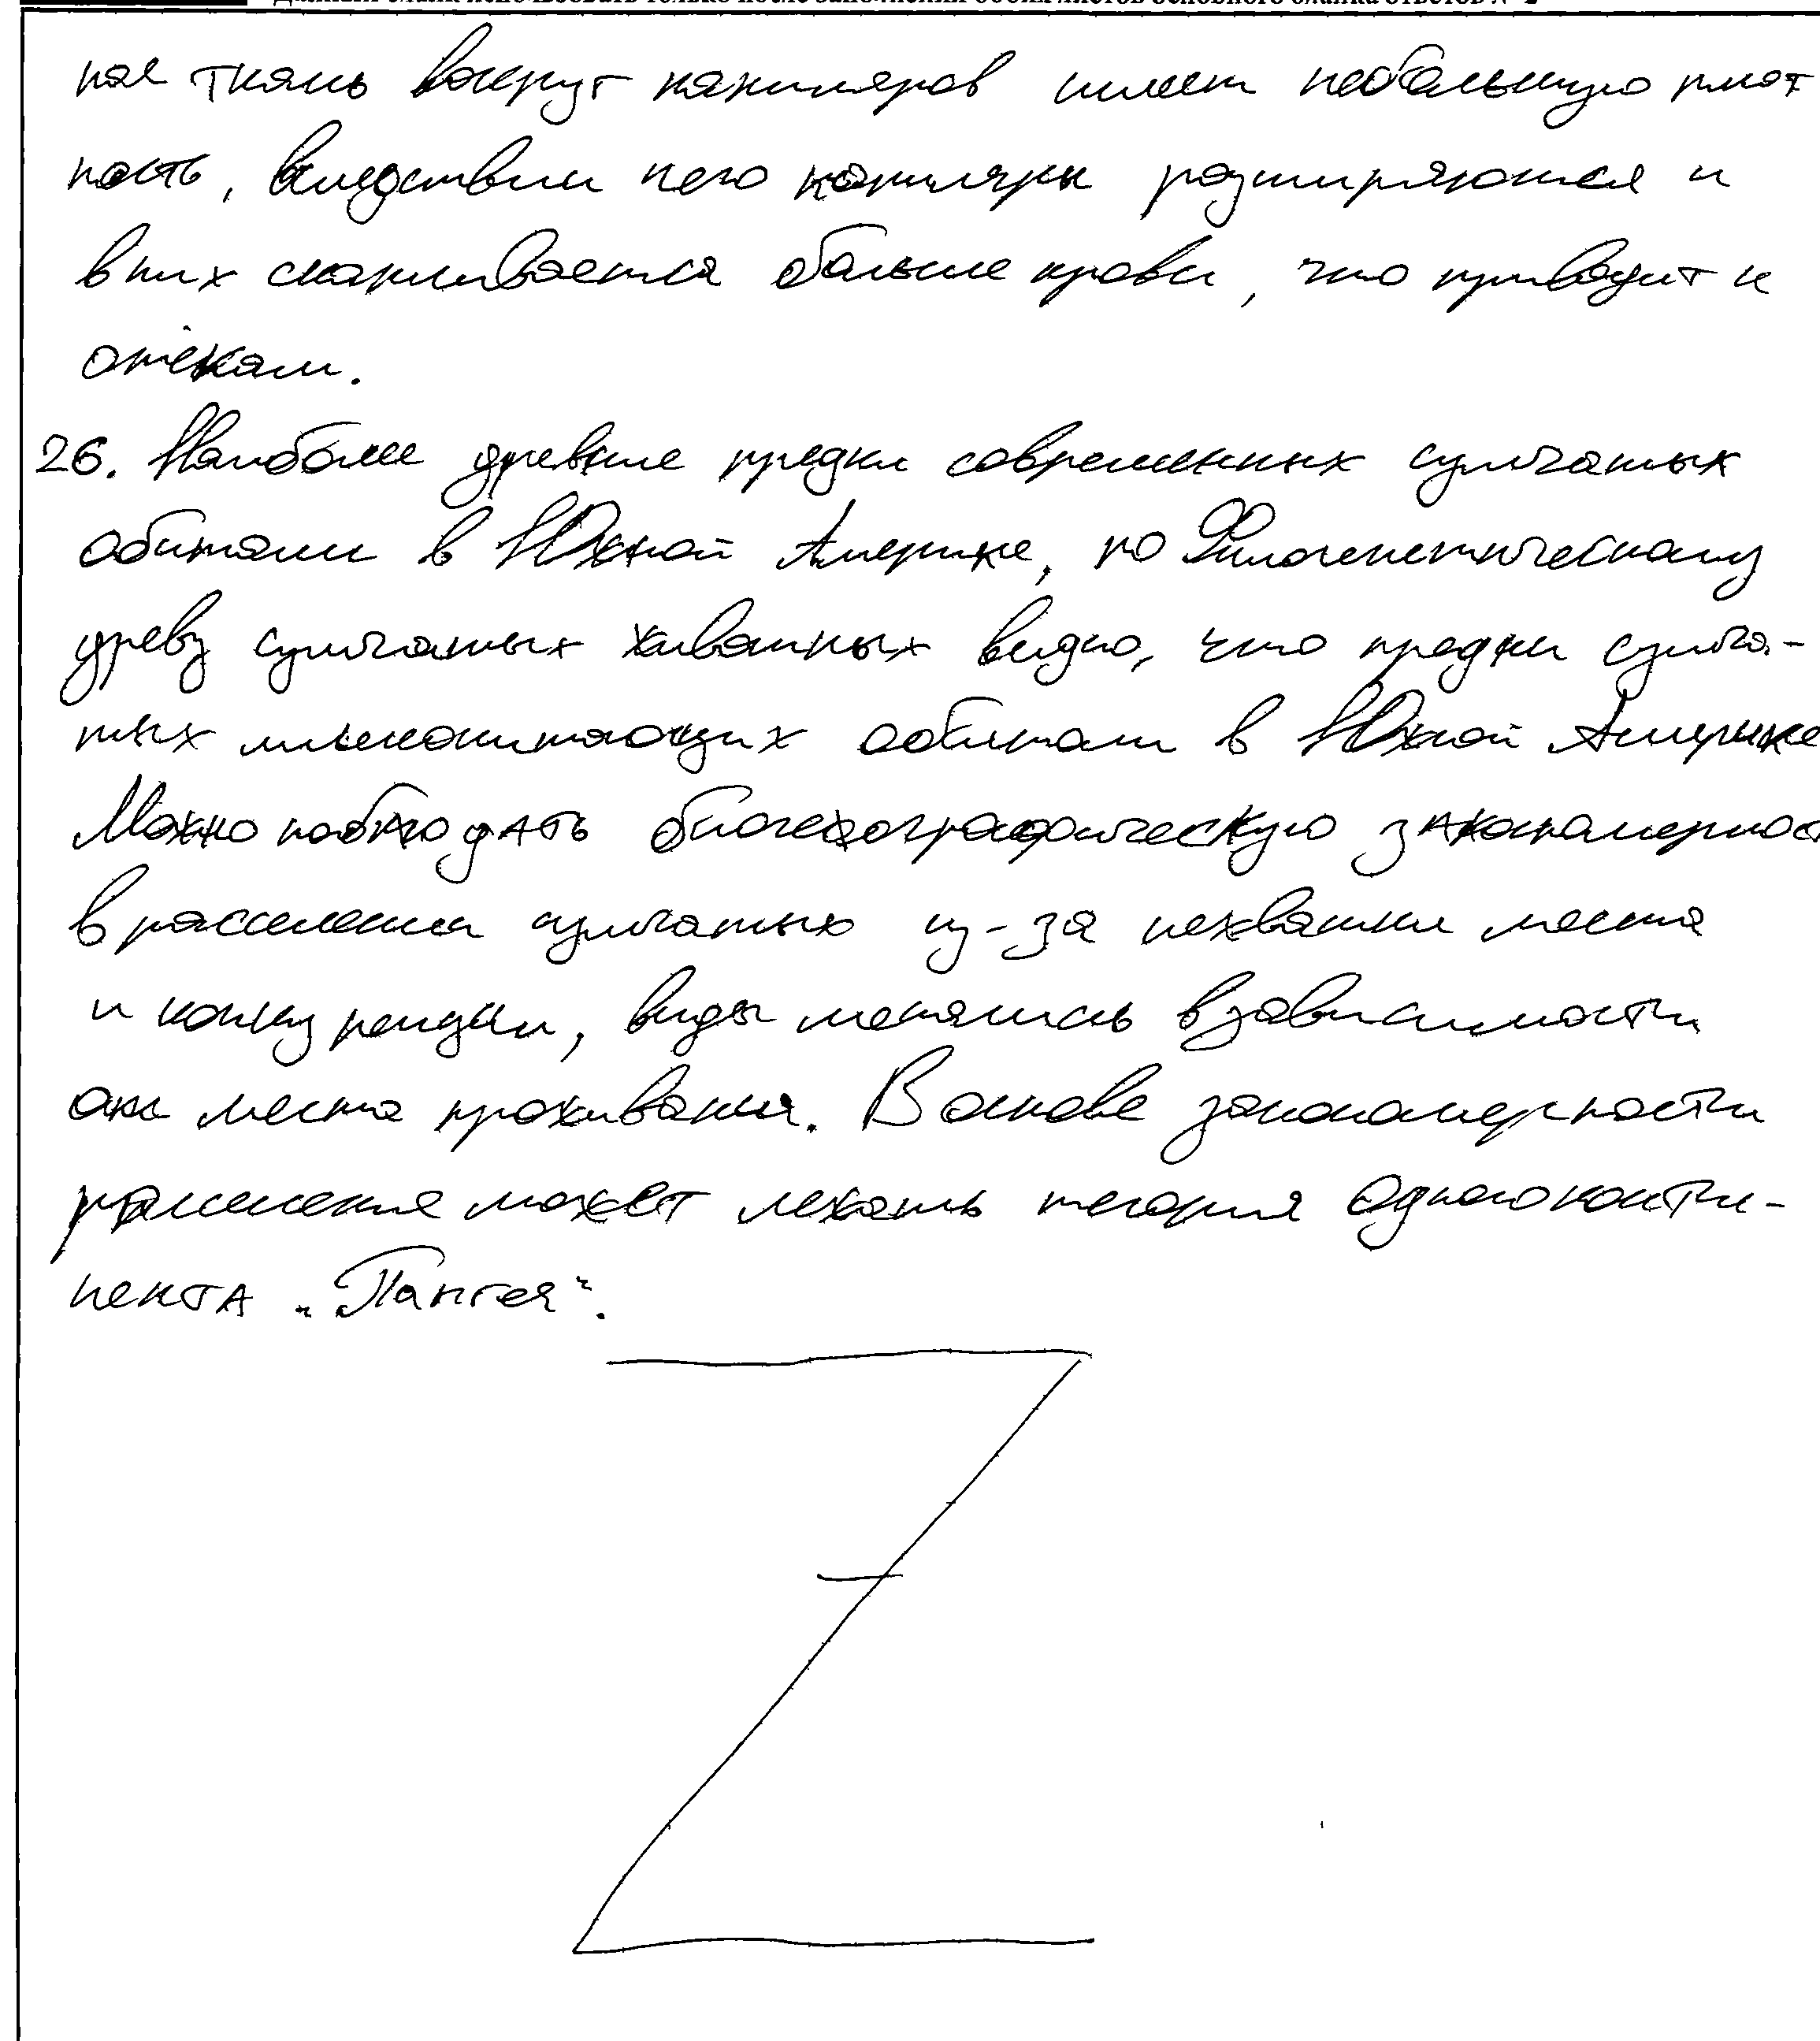 ная ткань вокруг капиляров имеет небольшую плот
ность, вследствии чего капиляры расширяются и
в них скапливается больше крови, что приводит к
отёкам.
26. Наиболее древние предки современных сумчатых
обитали в Южной Америке, по Филогенетическому
древу сумчатых животных видно, что предки сумча-
тых млекопитающих обитали в Южной Америке
Можно наблюдать биогеографическую закономерност
в расселении сумчатых из-за нехватки места
и конкуренции, виды менялись в зависимости
от места проживания. В основе закономерности
расселения может лежать теория одного конти-
нента "Пангея".